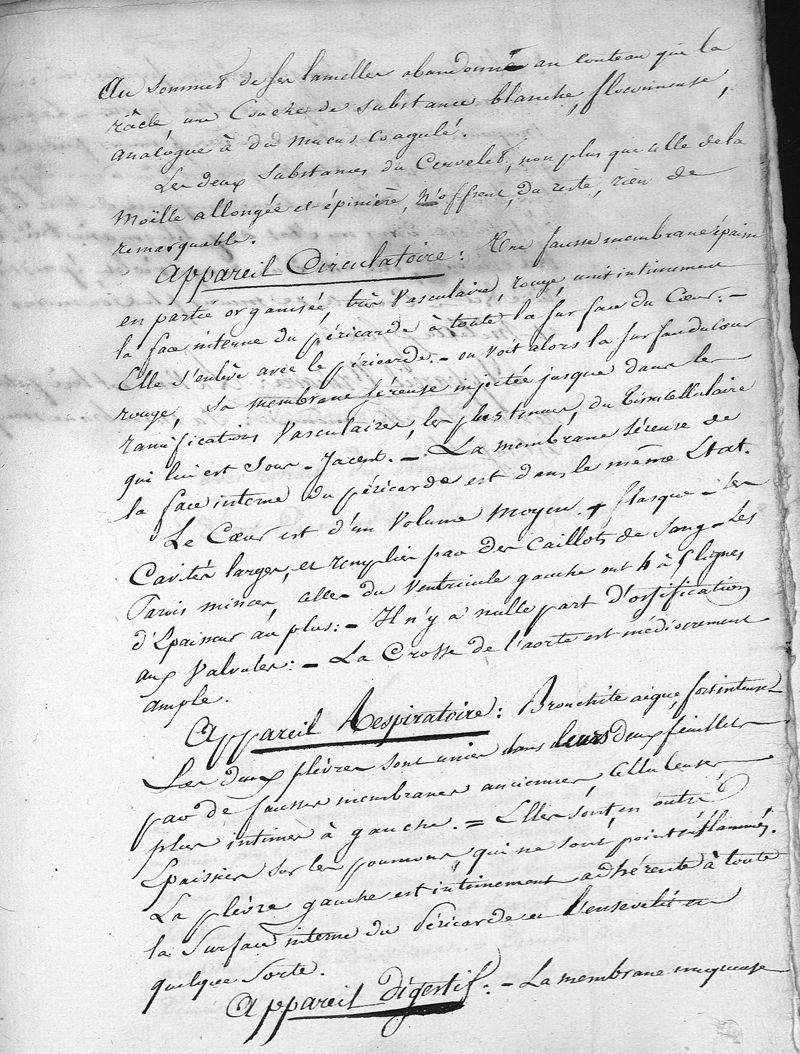 Au sommet de ses lamelles abandonne au couteau qui la
râcle, une Couche de substance blanche, floconneuse,
analogue à du mucus coagulé.
Les deux substances du Cervelet, non plus que celle de la
Moëlle allongée et épinière, n'offrent, du reste, rien de
remarquable.
Appareil Circulatoire : Une fausse membrane épaisse
en partie organisée, très Vasculaire, rouge, unit intimement
la face interne du péricarde à toute la surface du Cœur : -
Elle s'enlève avec le péricarde. - on voit alors la surface du Cœur
rouge, sa membrane séreuse injectée jusque dans les
ramifications Vasculaires, les plus tenues, du Tissu Cellulaire
qui lui est sous-jacent. - La membrane séreuse de
la face interne du péricarde est dans le même Etat.
Le Cœur est d'un Volume moyen, flasque - les
Cavités larges, et remplies par des caillots de sang - Les
Parois minces, celles du Ventricule gauche ont 4 à 5 lignes
d'Epaisseur au plus : - Il n'y a nulle part d'ossification
aux Valvules : - La Crosse de l'aorte est médiocrement
ample.
Appareil Respiratoire : Bronchite aigue, fort intense
Les deux plèvres sont unies dans leurs deux feuillets
par de fausses membranes anciennes, Celluleuses,
plus intimes à gauche. = Elles sont en outre
Epaissies sur les poumons qui ne sont point enflammés.
La plèvre gauche est intimement adhérente à toute
la Surface interne du Péricarde et l'ensevelit en
quelque sorte.
Appareil Digestif : - La membrane muqueuse